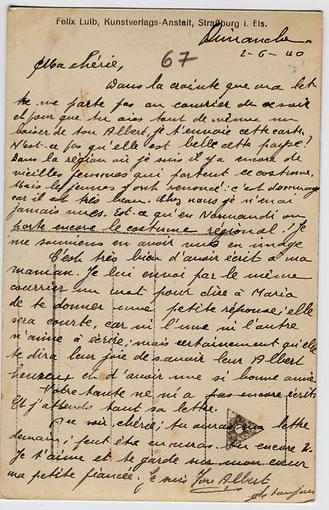 Felix Luib, Kunstverlags-Anstalt, Straßburg i. Els.
Dimanche
2-6-40
67
Ma chérie,
Dans la crainte que ma let
te ne parte pas au courrier de ce soir
et pour que tu aies tout de même un
baiser de ton Albert, je t'envoie cette carte.
N'est-ce pas qu'elle est belle cette payse?
Dans la région où je suis il y a encore de
vieilles femmes qui portent ce costume,
Mais les jeunes y ont renoncé: c'est dommage
car il est très beau. Chez nous je n'en ai
jamais vues. Est-ce qu'en Normandie on
porte encore le costume régional? Je
me souviens en avoir vues en image
C'est très bien d'avoir écrit à ma
maman. Je lui envoi par le même
courrier un mot pour dire à Maria
de te donner une petite réponse; elle
sera courte, car ni l'une ni l'autre
n'aime à écrire; mais certainement qu'elle
te dira leur joie de savoir leur Albert
heureux et d'avoir une si bonne amie.
Votre tante ne m'a pas encore écrit
Et j'attends tant sa lettre.
Au soir, chérie; tu auras une lettre
demain; peut être en auras-tu encore 2.
Je t'aime et te garde sur mon cœur
ma petite fiancée. Je suis Ton Albert